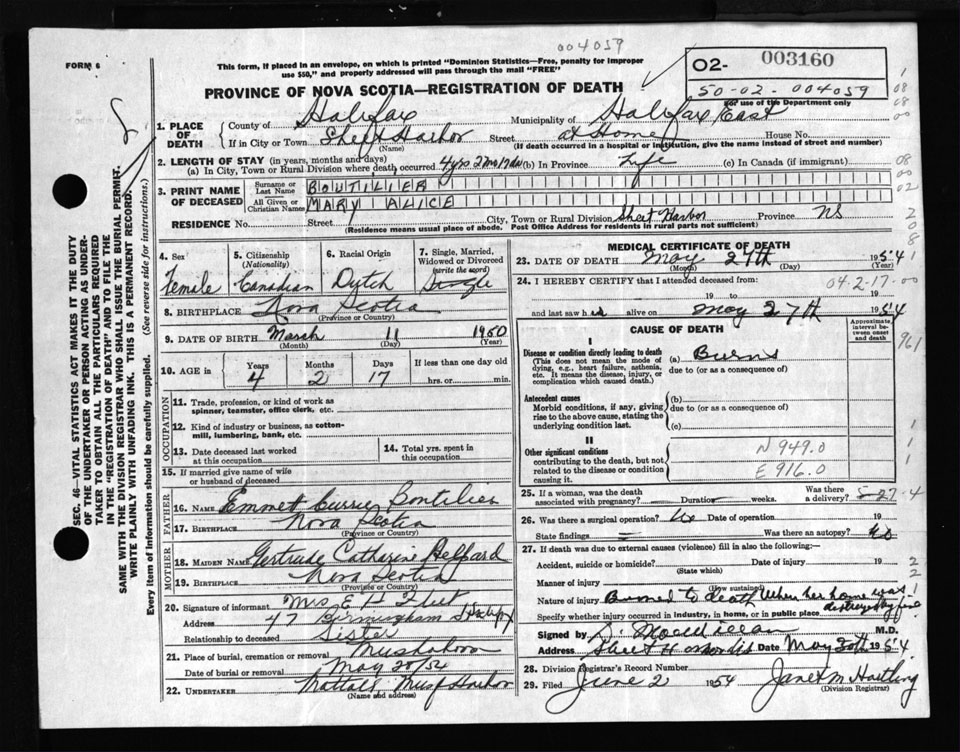 004059
FORM 6
This form, if placed in an envelope, on which is printed "Dominion Statistics—Free, penalty for improper
use $50," and properly addressed will pass through the mail "FREE"
O2- 003160
50-02-004059
For use of the Department only
PROVINCE OF NOVA SCOTIA—REGISTRATION OF DEATH
1. PLACE OF DEATH
County of Halifax Municipality of Halifax East
If in City or Town Sheet Harbor Street at Home House No.
(Name) (If death occurred in a hospital or institution, give the name instead of street and number)
2. LENGTH OF STAY (in years, months and days)
(a) In City, Town or Rural Division where death occurred 4 yrs 2 mo 17 da (b) In Province Life (c) In Canada (if immigrant)
3. PRINT NAME OF DECEASED
Surname or Last Name BOUTILIER
All Given or Christian Names MARY ALICE
RESIDENCE No. Street City, Town or Rural Division Sheet Harbor Province NS
(Residence means usual place of abode. Post Office Address for residents in rural parts not sufficient)
4. Sex Female
5. Citizenship (Nationality) Canadian
6. Racial Origin Dutch
7. Single, Married, Widowed or Divorced (write the word) Single
8. BIRTHPLACE Nova Scotia
(Province or Country)
9. DATE OF BIRTH March 11 1950
(Month) (Day) (Year)
10. AGE in Years Months Days If less than one day old
4 2 17 hrs. or min.
OCCUPATION
11. Trade, profession, or kind of work as
spinner, teamster, office clerk, etc.
12. Kind of industry or business, as cotton-
mill, lumbering, bank, etc.
13. Date deceased last worked at this occupation
14. Total yrs. spent in this occupation
15. If married give name of wife
or husband of deceased
FATHER
16. NAME Emmet Currie Boutilier
17. BIRTHPLACE Nova Scotia
(Province or Country)
MOTHER
18. MAIDEN NAME Gertrude Catherine
19. BIRTHPLACE Nova Scotia
(Province or Country)
20. Signature of informant Mrs E H
Address 47 Birmingham St
Relationship to deceased Sister
21. Place of burial, cremation or removal
Date of burial or removal May 28/54
22. UNDERTAKER Harbor
(Name and address)
MEDICAL CERTIFICATE OF DEATH
23. DATE OF DEATH May 27th 1954
(Month) (Day) (Year)
24. I HEREBY CERTIFY that I attended deceased from 04-2-17-00
19 to 19
and last saw h alive on May 27th 1954
CAUSE OF DEATH
Approximate interval between onset and death
I
Disease or condition directly leading to death
(This does not mean the mode of
dying, e.g., heart failure, asthenia,
etc. It means the disease, injury, or
complication which caused death.)
(a) Burns
due to (or as a consequence of)
Antecedent causes
Morbid conditions, if any, giving
rise to the above cause, stating the
underlying condition last.
(b)
due to (or as a consequence of)
(c)
II
Other significant conditions
contributing to the death, but not
related to the disease or condition
causing it.
N 949.0
E 916.0
25. If a woman, was the death Was there
associated with pregnancy? Duration weeks. a delivery? 5-27-4
26. Was there surgical operation? No Date of operation 19
State findings Was there an autopsy? No
27. If death was due to external causes (violence) fill in also the following:-
Accident, suicide or homicide? Date of injury 19
(State which)
Manner of injury
(How sustained)
Nature of injury Burned to death when her home was
destroyed by fire
Specify whether injury occurred in industry, in home, or in public place
Signed by M.D.
Address Sheet Date May 1954
28. Division Registrar's Record Number
29. Filed June 2 1954 Janet M Hartling
(Division Registrar)
SEC. 46—VITAL STATISTICS ACT MAKES IT THE DUTY
OF THE UNDERTAKER OR PERSON ACTING AS UNDER-
TAKER TO OBTAIN ALL THE PARTICULARS REQUIRED
IN THE "REGISTRATION OF DEATH" AND TO FILE THE
SAME WITH THE DIVISION REGISTRAR WHO SHALL ISSUE THE BURIAL PERMIT.
WRITE PLAINLY WITH UNFADING INK. THIS IS A PERMANENT RECORD.
Every item of information should be carefully supplied. (See reverse side for instructions.)